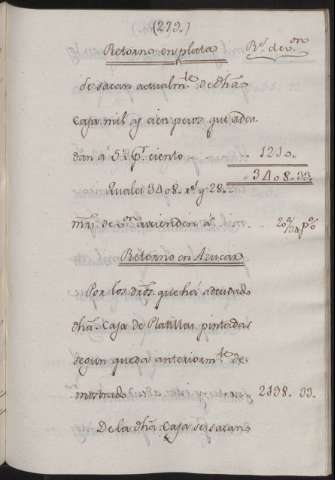 (273.)
Retorno en plata R.^s de v.^on
se sacan actualm.^te de dha
caja mil y cien pesos que adeu
dan á 5 p.^r ciento 1210.
3408..33.
Rvales 3408. r.^s y 28..
mrs de v.^on ascienden á
Retorno en Azucar
Por los dros. que ha adeudado
dha. Caja de Platillas pintadas
segun queda anteriorm.^te de
mostrado 2198. 33.
De la dha. Caja se sacan